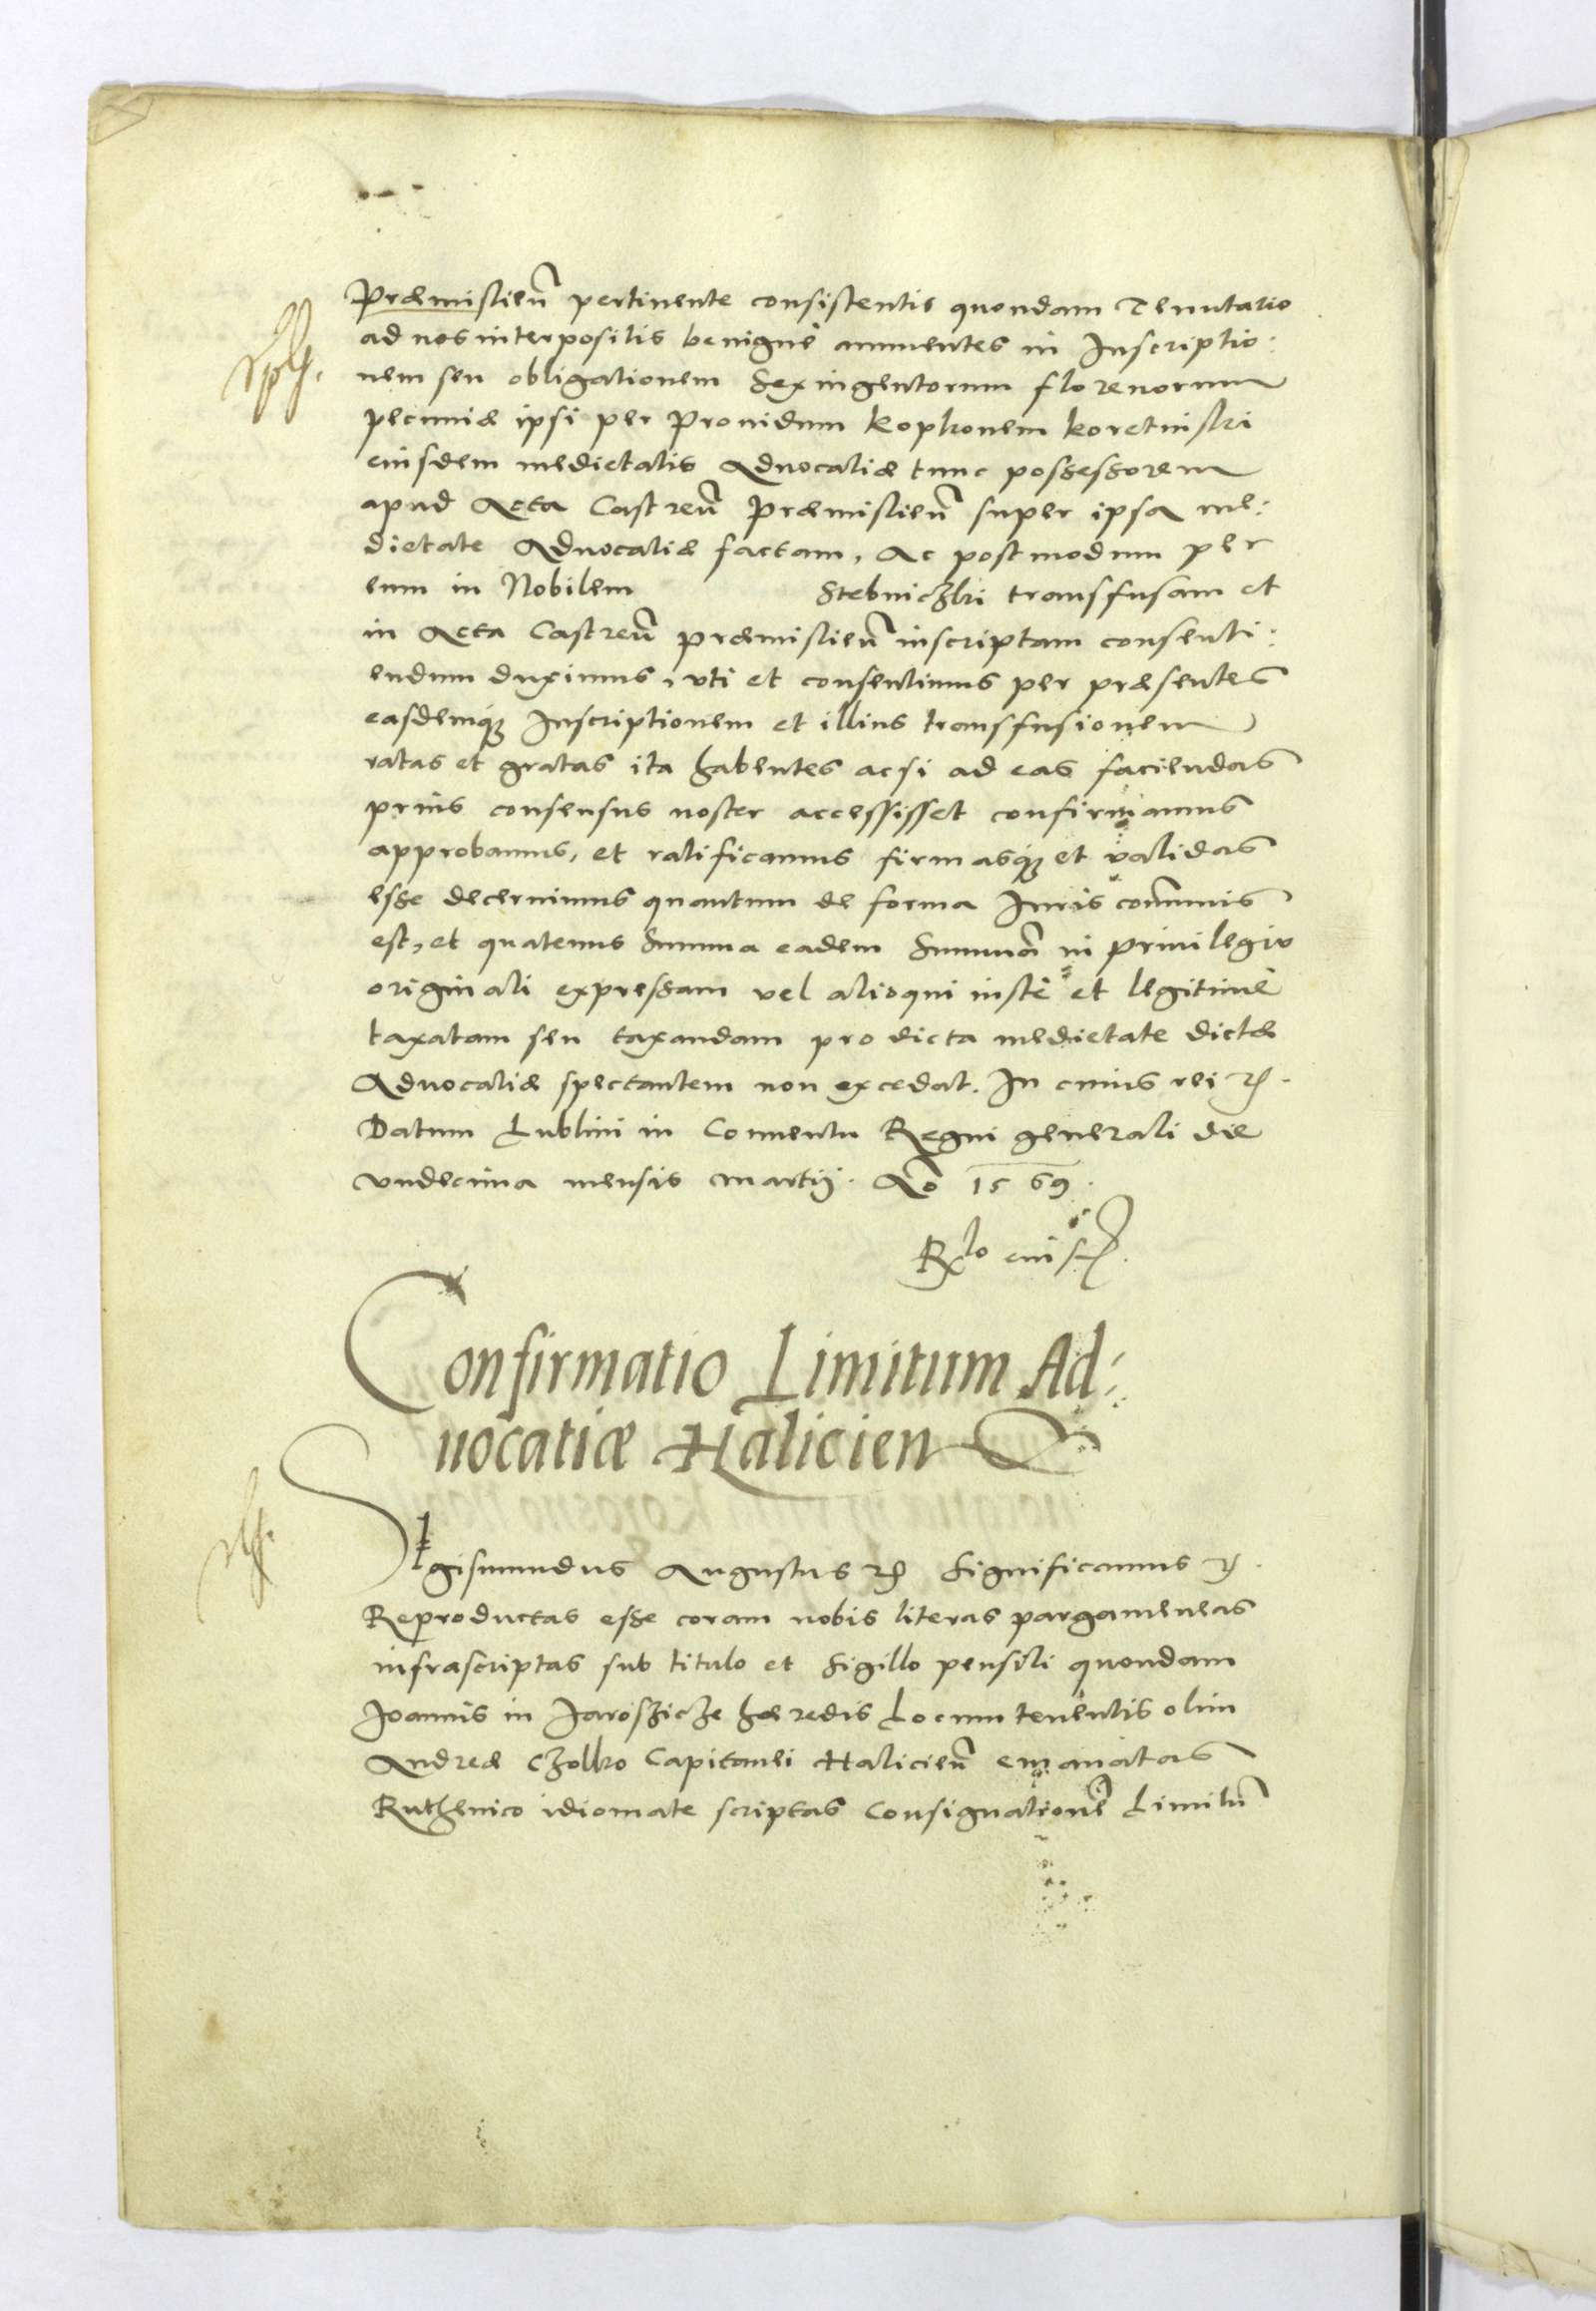 Præmislien̄ pertinente consistentis quondam Tenutario
ad nos interpositis benignè annuentes in Inscriptio:
nem seu obligationem Sexingentorum florenorum
pecuniæ ipsi per Prouidum Koplonem Koretniski
eiusdem medietatis Aduocatiæ tunc possessorem
apud Acta Castren̄ Præmislien̄ super ipsa me:
dietate Aduocatiæ factam, Ac postmodum per
eum in Nobilem Stebniczki transfusam et
in Acta Castren̄ præmislien̄ inscriptam consenti:
endum duximus, vti et consentimus per præsentes
easdemq́ꝫ Inscriptionem et illius transfusionem
ratas et gratas ita habentes acsi ad eas faciendas
prius consensus noster accessisset confirmamus
approbamus, et ratificamus firmasq́ꝫ et validas
esse decernimus quantum de forma Iuris com̄unis
est, et quatenus Summa eadem Summā in priuilegio
originali expressam vel alioqui iustè et legitimè
taxatam seu taxandam pro dicta medietate dictæ
Aduocatiæ spectantem non excedat. In cuius rei ꝛc.
Datum Lublini in Conuentu Regni generali die
vndecima mensis martij. Ao 1569.
Rlo eiusd.
Confirmatio Limitum Ad:
uocatiæ Halicien
Sigismundus Augustus ꝛc Significamus ꝛc.
Reproductas esse coram nobis literas pargameneas
infrascriptas sub titulo et sigillo pensili quondam
Joannis in Jaroszicze hæredis Locum tenentis olim
Andreæ Czolko Capitanei Halicien̄ emanatas
Ruthenico idiomate scriptas Consignationē Limitū